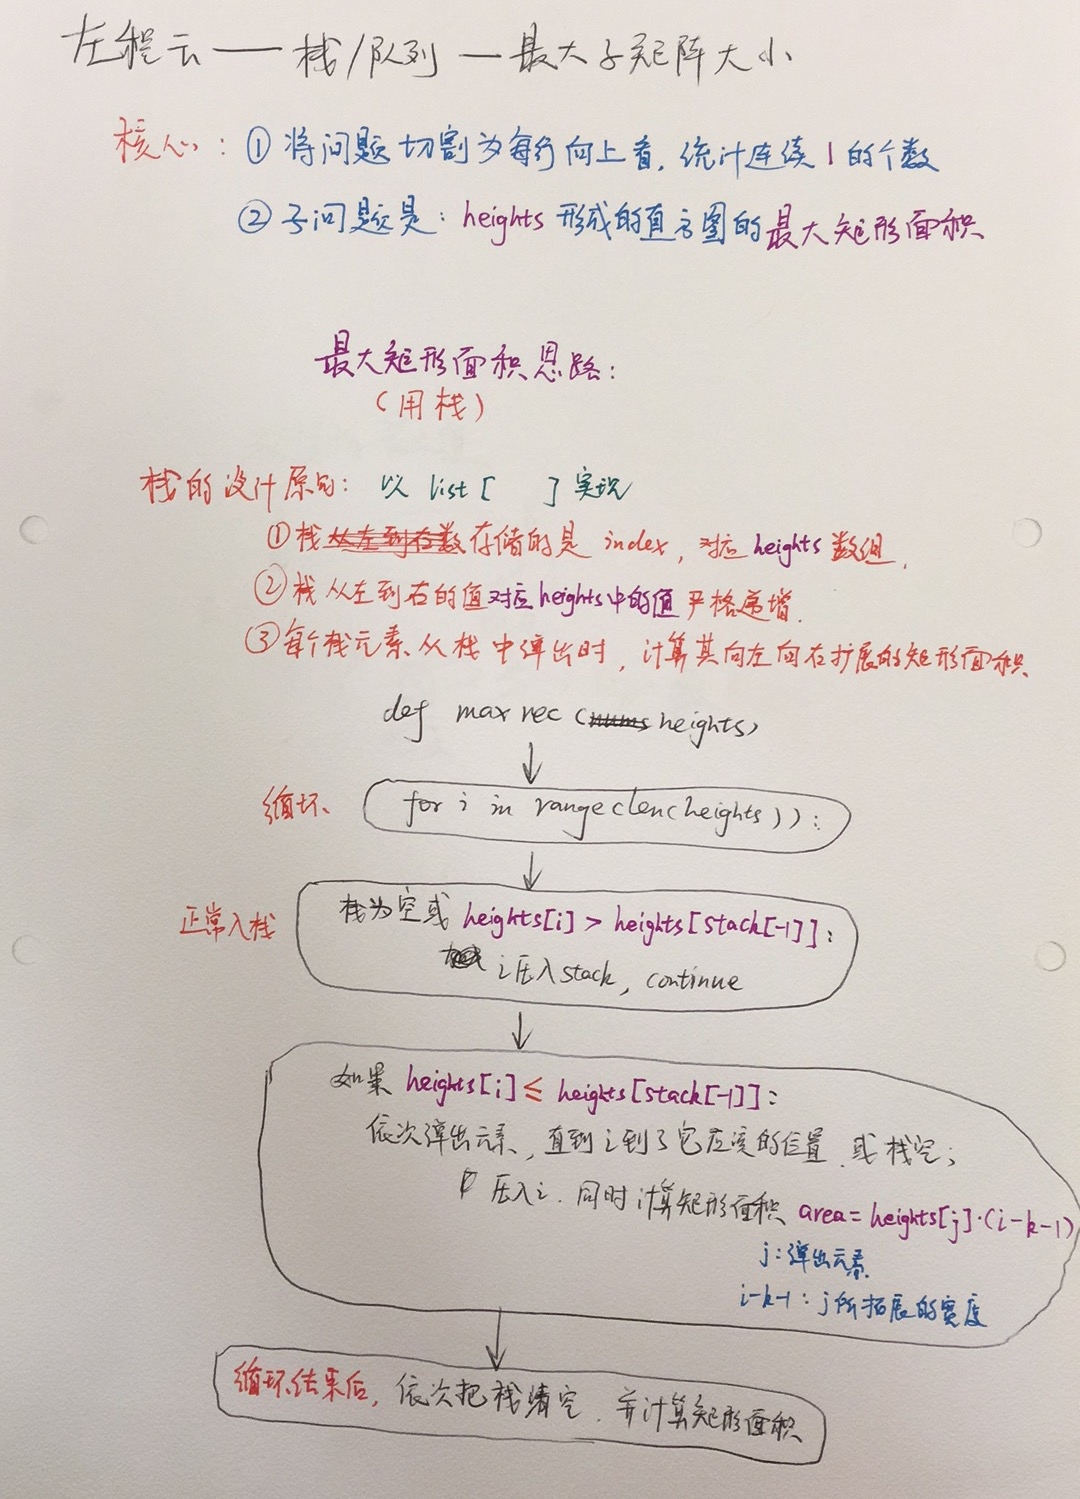 左程云——栈/队列—最大子矩阵大小
核心：①将问题切割为每行向上看，统计连续1的个数
②子问题是：heights形成的直方图的最大矩形面积
最大矩形面积思路：
（用栈）
栈的设计原句：以 list [ ] 实现
①栈从左到右数存储的是 index，对应 heights 数组.
②栈从左到右的值对应heights中的值严格递增.
③每个栈元素从栈中弹出时，计算其向左向右扩展的矩形面积
def maxrec (nums heights)
循环 for i in range(len(heights)):
正常入栈 栈为空或 heights[i] > heights[stack[-1]]:
i压入stack, continue
如果 heights[i] ≤ heights[stack[-1]]:
依次弹出元素，直到i到了它应该的位置，或栈空；
压入i. 同时计算矩形面积 area = heights[j]·(i-k-1)
j：弹出元素
i-k-1：j所拓展的宽度
循环结束后，依次把栈清空，并计算矩形面积